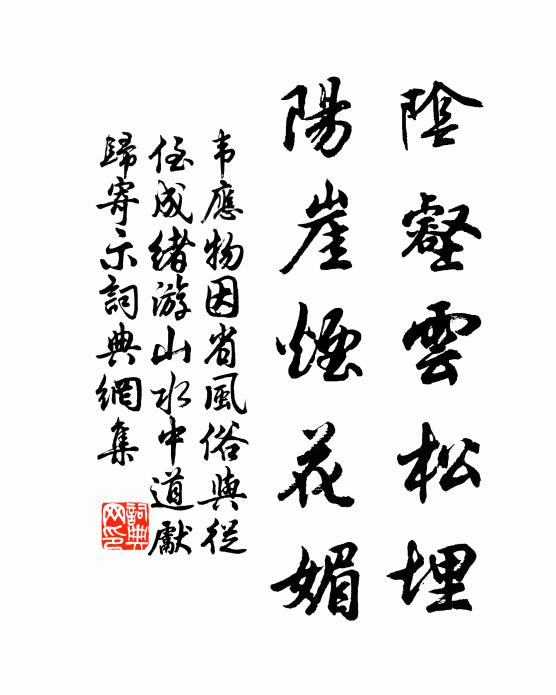 陰壑雲松埋
陽崖煙花媚
韦應物因省風俗與從
侄成緒游山水中道獻
歸寄示詞典網集
詞典网印